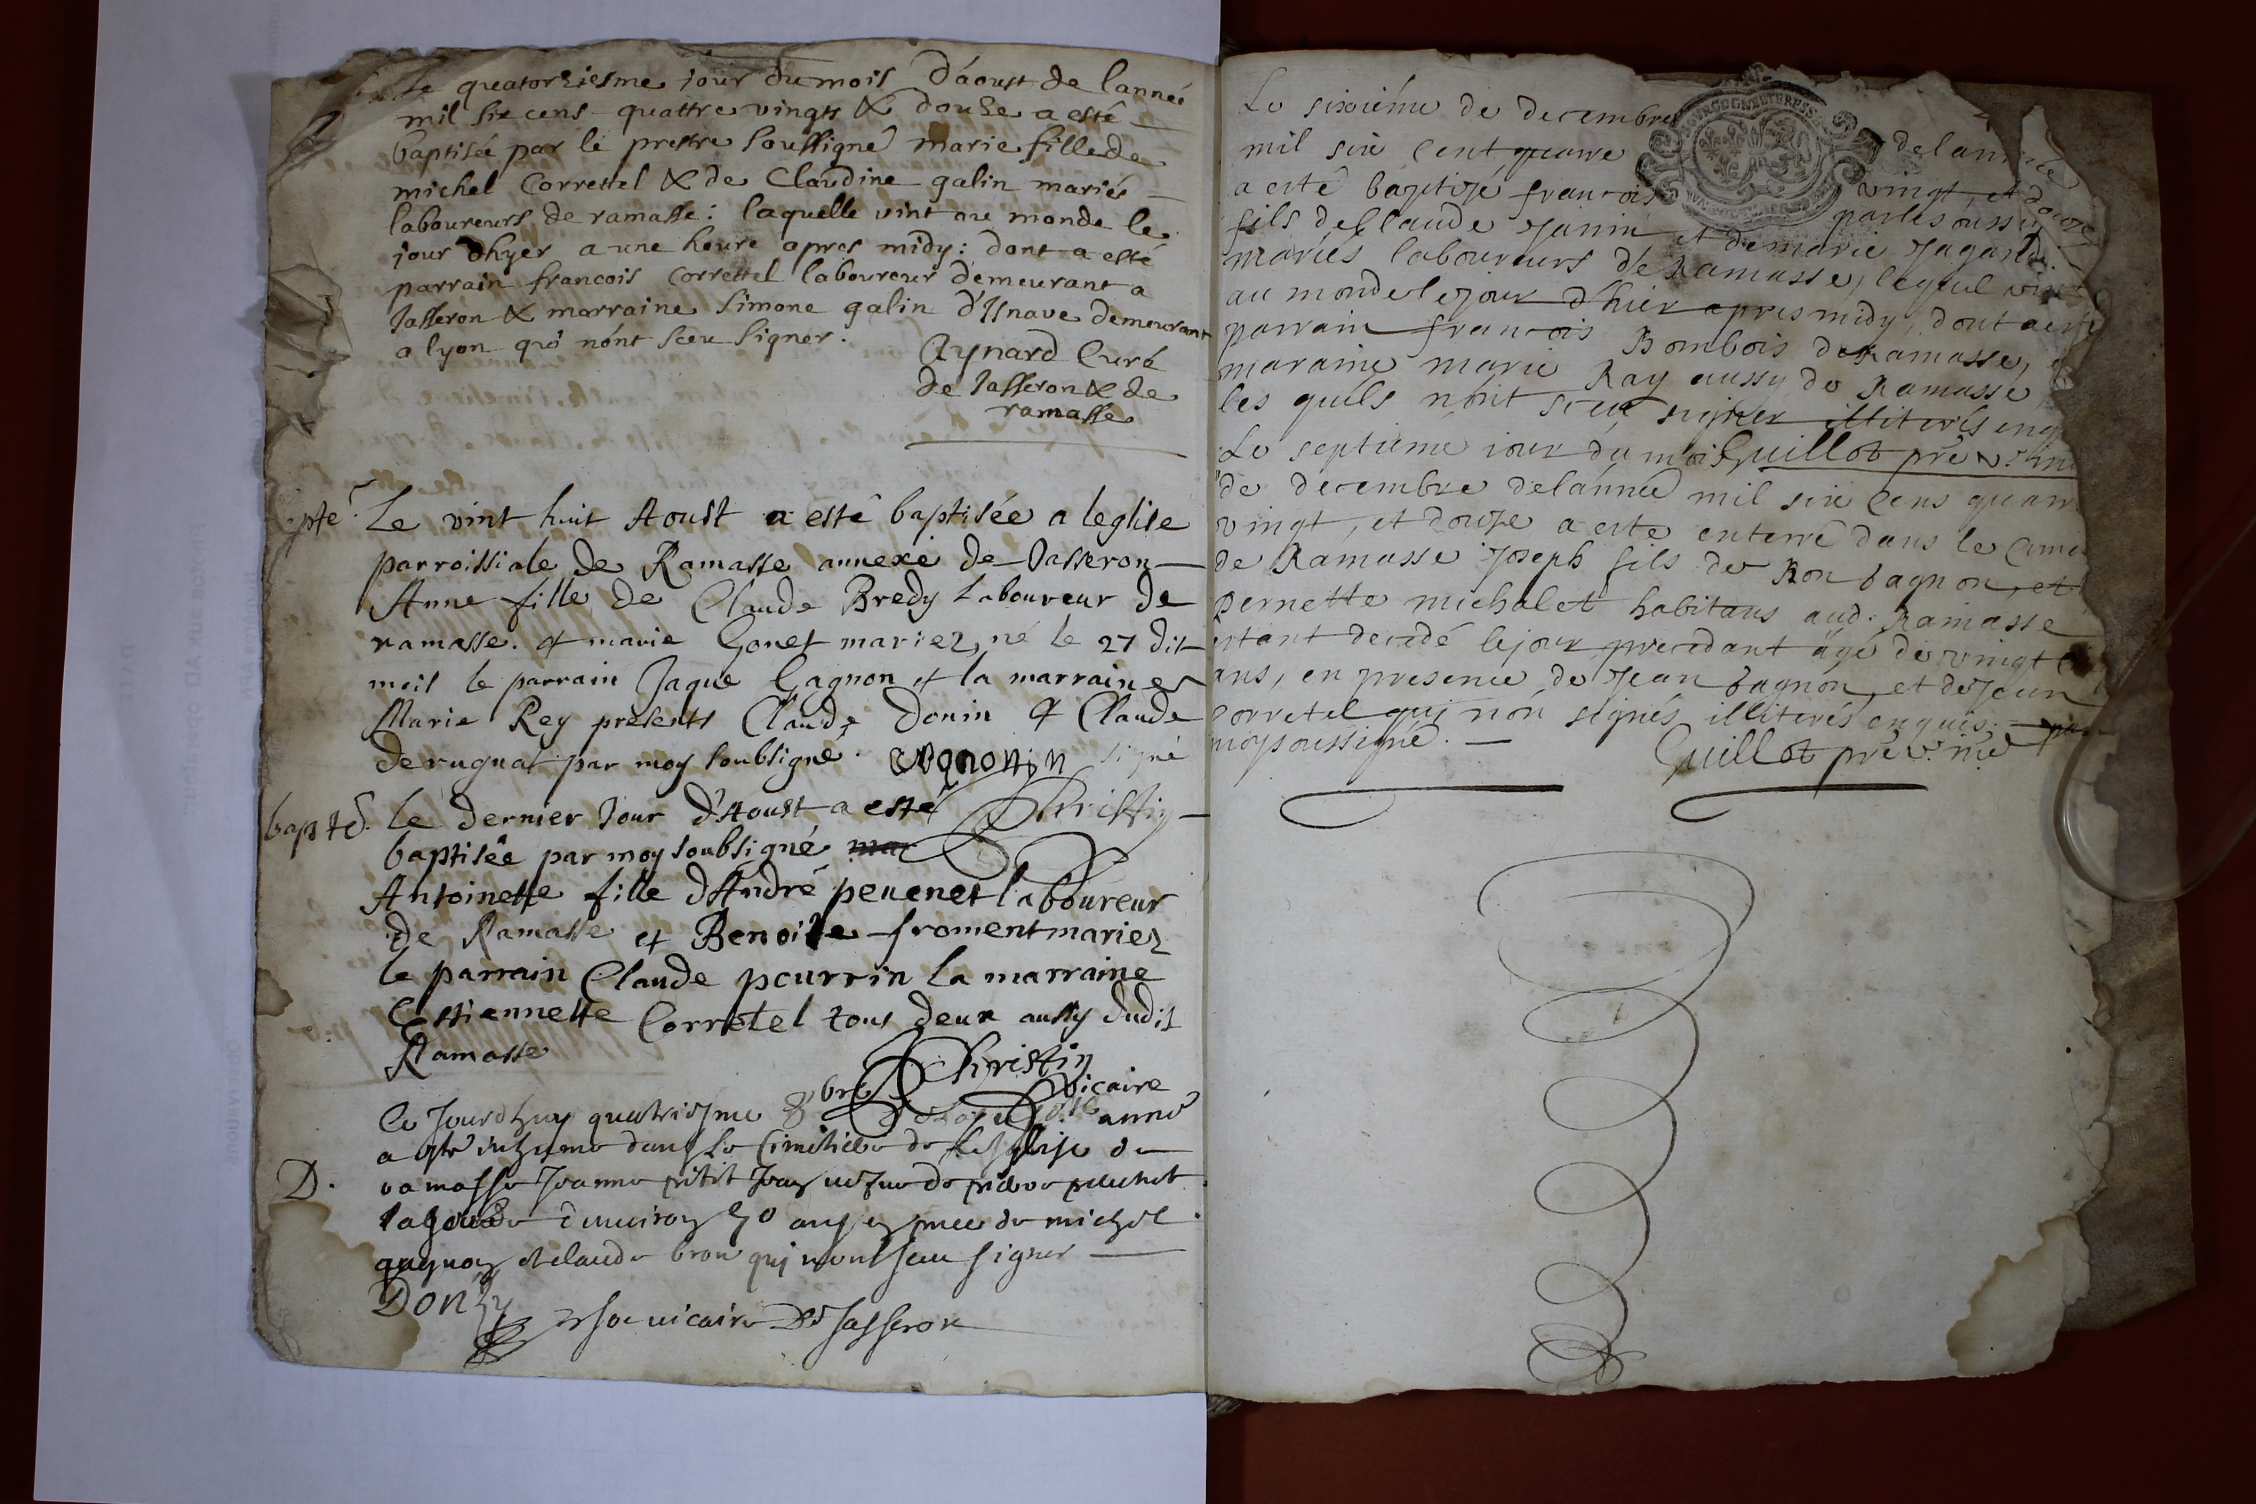 Le quatorziesme jour du mois d'aoust de l'année
mil six cens quattre vingts & douze a esté
baptisée par le prestre soussigné marie fille de
michel Correttel & de Claudine galin mariés
laboureurs de ramasse: laquelle vint au monde le
jour d'hyer a une heure apres midy: dont a esté
parrain francois Correttel laboureur demeurant a
Jasseron & marraine Simone galin d'Isnave demeurant
a lyon qui n'ont sceu signer.
Aynard Curé
de Jasseron & de
ramasse
Le vint huit Aoust a esté baptisée a leglise
parroissiale de Ramasse annexe de Jasseron
Anne fille de Claude Bredy laboureur de
ramasse. et marie Gonet mariez, né le 27 dit
mois le parrain Jaque Gagnon et la marraine
Marie Rey presents Claude Donin & Claude
derugnat par moy soubsigné. signé
Christin
bapte. le dernier Jour d'Aoust a esté
baptisée par moy soubsigné mar
Antoinette fille d'André peuenet laboureur
de Ramasse et Benoite froment mariez
le parrain Claude pourrin la marraine
Estiennette Corretel tous deux aussy dudit
Ramasse
Christin
vicaire
Ce Jourdhuy quatriesme 8bre année
a esté inhumé dans le Cimetiere de leglise de
D. ramasse Jeanne petit Jean vefue de pierre peuenet
anuiron 50 ans en pnce de michel
gagnon et claude brou qui nont sceu signer
Donin vicaire de Jasseron
Le sixiéme de decembre de lannée
mil six cent quatre vingt, et douze
a esté baptizé francois par le soussig
fils de Claude Janin et de marie Jagan
mariés laboureurs de Ramasse, lequel vin
au monde le jour d'hier apres midy, dont a esté
parrain francois Bombois de Ramasse, e
maraine marie Ray aussy de Ramasse,
les quels n'ont sceu signer illiterés enq
Guillot prê vi
Le septiéme jour du mois
de decembre de lánnée mil six cens quatr
vingt, et douze a esté enterré dans le Cime
de Ramasse Joseph fils de Ron bagnon, et
Pernette michalet habitans aud. Ramasse
estant decedé le jour precedant âgé de vingt
ans, en presence de Jean bagnon, et de Jean
Corretel qui n'on signés illiterés enquis. par
moy soussigné.
Guillot prê